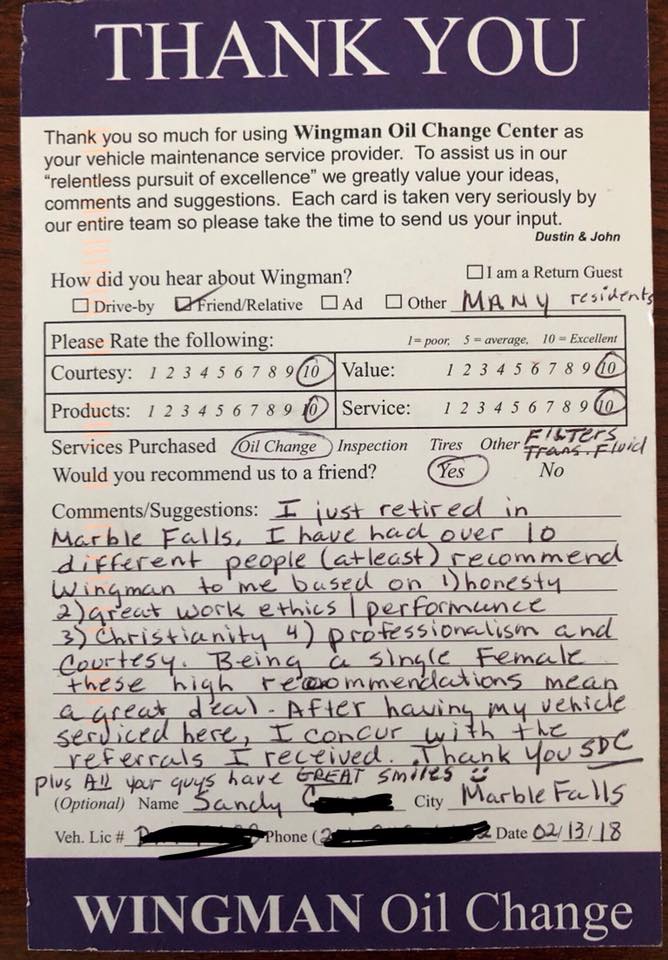 THANK YOU
Thank you so much for using Wingman Oil Change Center as
your vehicle maintenance service provider. To assist us in our
“relentless pursuit of excellence” we greatly value your ideas,
comments and suggestions. Each card is taken very seriously by
our entire team so please take the time to send us your input.
Dustin & John
How did you hear about Wingman? I am a Return Guest
Drive-by Friend/Relative Ad Other MANY residents
Please Rate the following: 1= poor, 5 = average, 10 = Excellent
Courtesy: 1 2 3 4 5 6 7 8 9 10 Value: 1 2 3 4 5 6 7 8 9 10
Products: 1 2 3 4 5 6 7 8 9 10 Service: 1 2 3 4 5 6 7 8 9 10
Services Purchased Oil Change Inspection Tires Other Filters
Trans. Fluid
Would you recommend us to a friend? Yes No
Comments/Suggestions: I just retired in
Marble Falls. I have had over 10
different people (atleast) recommend
Wingman to me based on 1) honesty
2) great work ethics / performance
3) Christianity 4) professionalism and
Courtesy. Being a single Female
these high recommendations mean
a great deal. After having my vehicle
serviced here, I concur with the
referrals I received. Thank You SDC
plus All your guys have GREAT smiles
(Optional) Name Sandy City Marble Falls
Veh. Lic # Phone ( Date 02/13/18
WINGMAN Oil Change